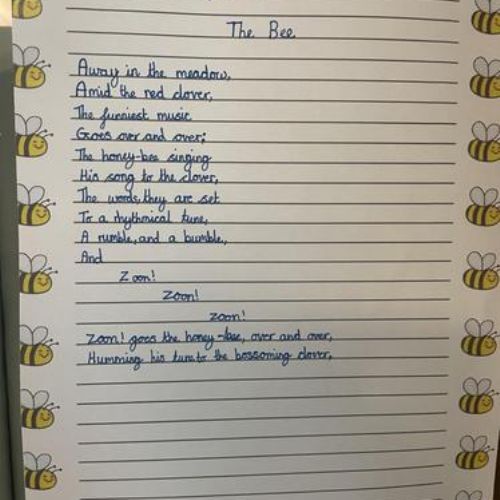 The Bee
Away in the meadow,
Amid the red clover,
The funniest music
Goes over and over;
The honey-bee singing
His song to the clover,
The words, they are set
To a rhythmical tune,
A rumble, and a bumble,
And
Zoon!
Zoon!
zoon!
Zoon! goes the honey-bee, over and over,
Humming his tune to the bossoming clover,